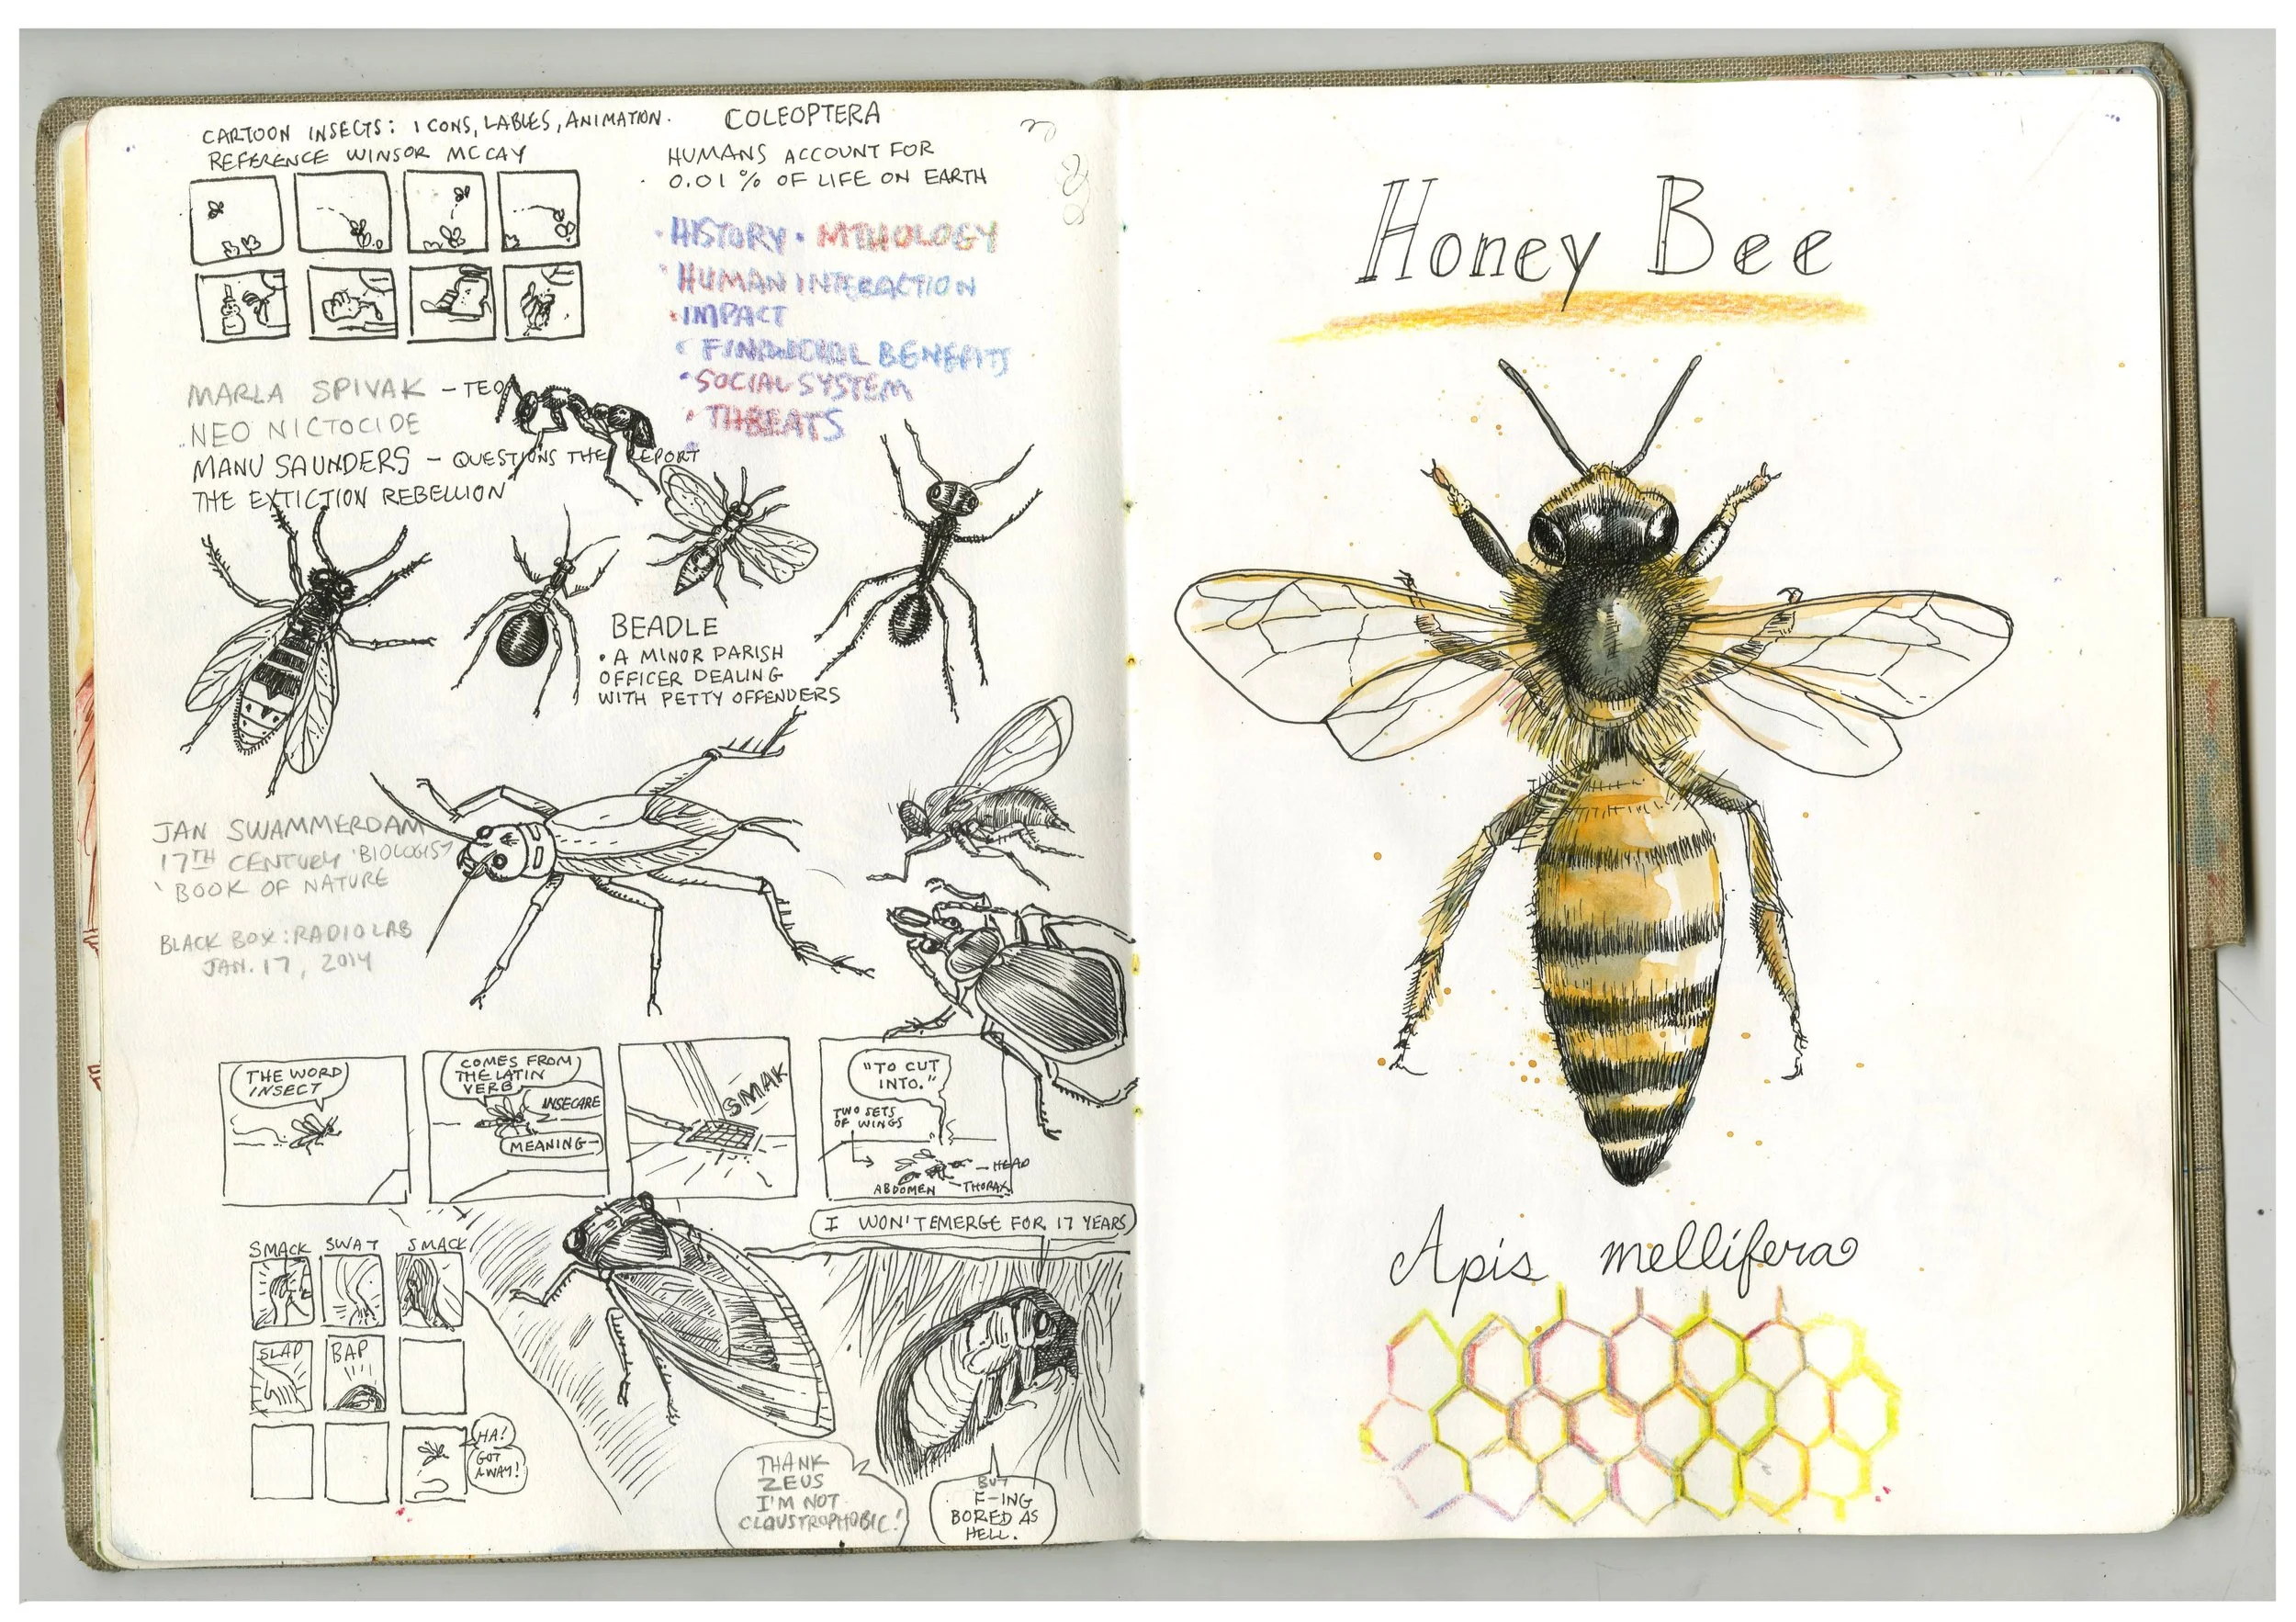 CARTOON INSECTS: ICONS, LABLES, ANIMATION.
REFERENCE WINSOR MCCAY
COLEOPTERA
HUMANS ACCOUNT FOR
0.01% OF LIFE ON EARTH
• HISTORY • MTHOLOGY
• HUMAN INTERACTION
• IMPACT
BENEFITS
• SOCIAL SYSTEM
• THREATS
MARLA SPIVAK – TED
NEO NICTOCIDE
MANU SAUNDERS – QUESTIONS THE REPORT
THE EXTICTION REBELLION
BEADLE
• A MINOR PARISH
OFFICER DEALING
WITH PETTY OFFENDERS
JAN SWAMMERDAM
17TH CENTURY 'BIOLOGIST'
'BOOK OF NATURE
BLACK BOX: RADIOLAB
JAN. 17, 2014
THE WORD
INSECT
COMES FROM
THE LATIN
VERB
INSECARE
MEANING—
SMAK
"TO CUT
INTO."
TWO SETS
OF WINGS
– HEAD
ABDOMEN – THORAX
I WON'T EMERGE FOR 17 YEARS
SMACK SWAT SMACK
SLAP BAP
HA!
GOT
AWAY!
THANK
ZEUS
I'M NOT
CLAUSTROPHOBIC!
BUT
F-ING
BORED AS
HELL.
Honey Bee
Apis mellifera